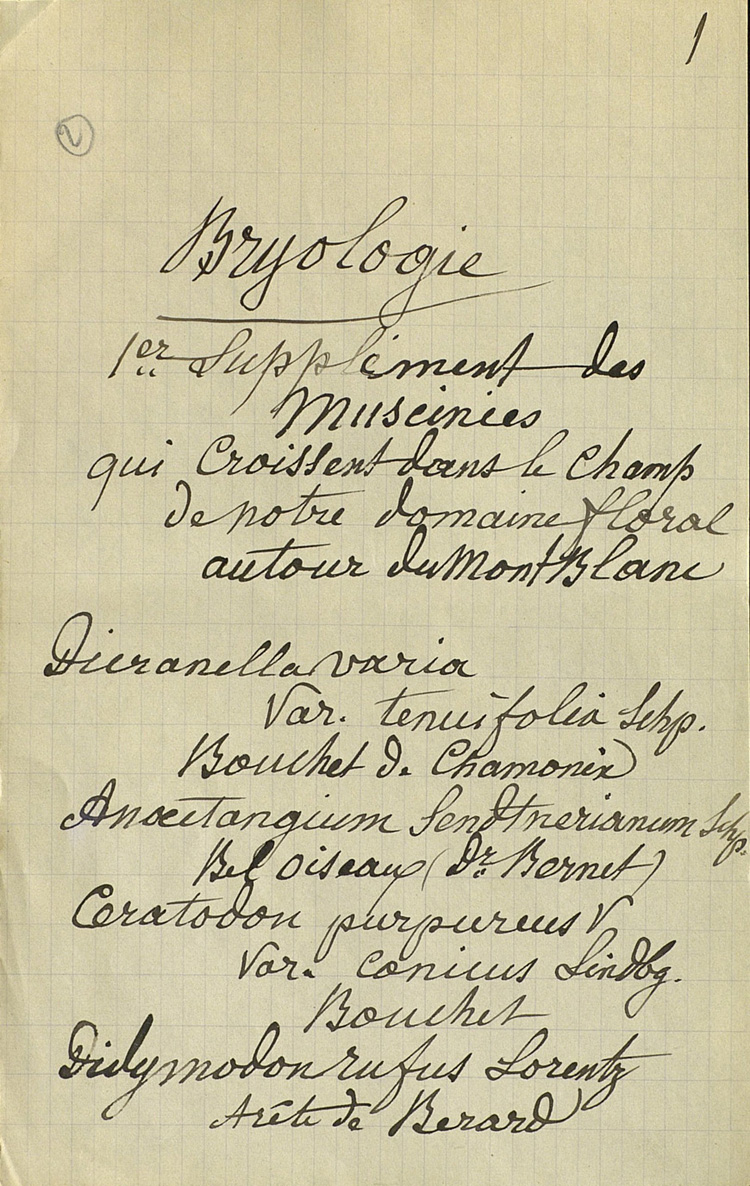 1
2
Bryologie
1er Supplément des
Muscinées
qui Croissent dans le Champ
de notre domaine floral
autour du Mont Blanc
Dicranella varia
Var. tenuifolia Schp.
Bouchet de Chamonix
Anoectangium Sendtnerianum Schp.
Bel Oiseau (Dr Bernet)
Ceratodon purpureus V
Var. conicus Lindbg.
Bouchet
Didymodon rufus Lorentz
Arête de Berard